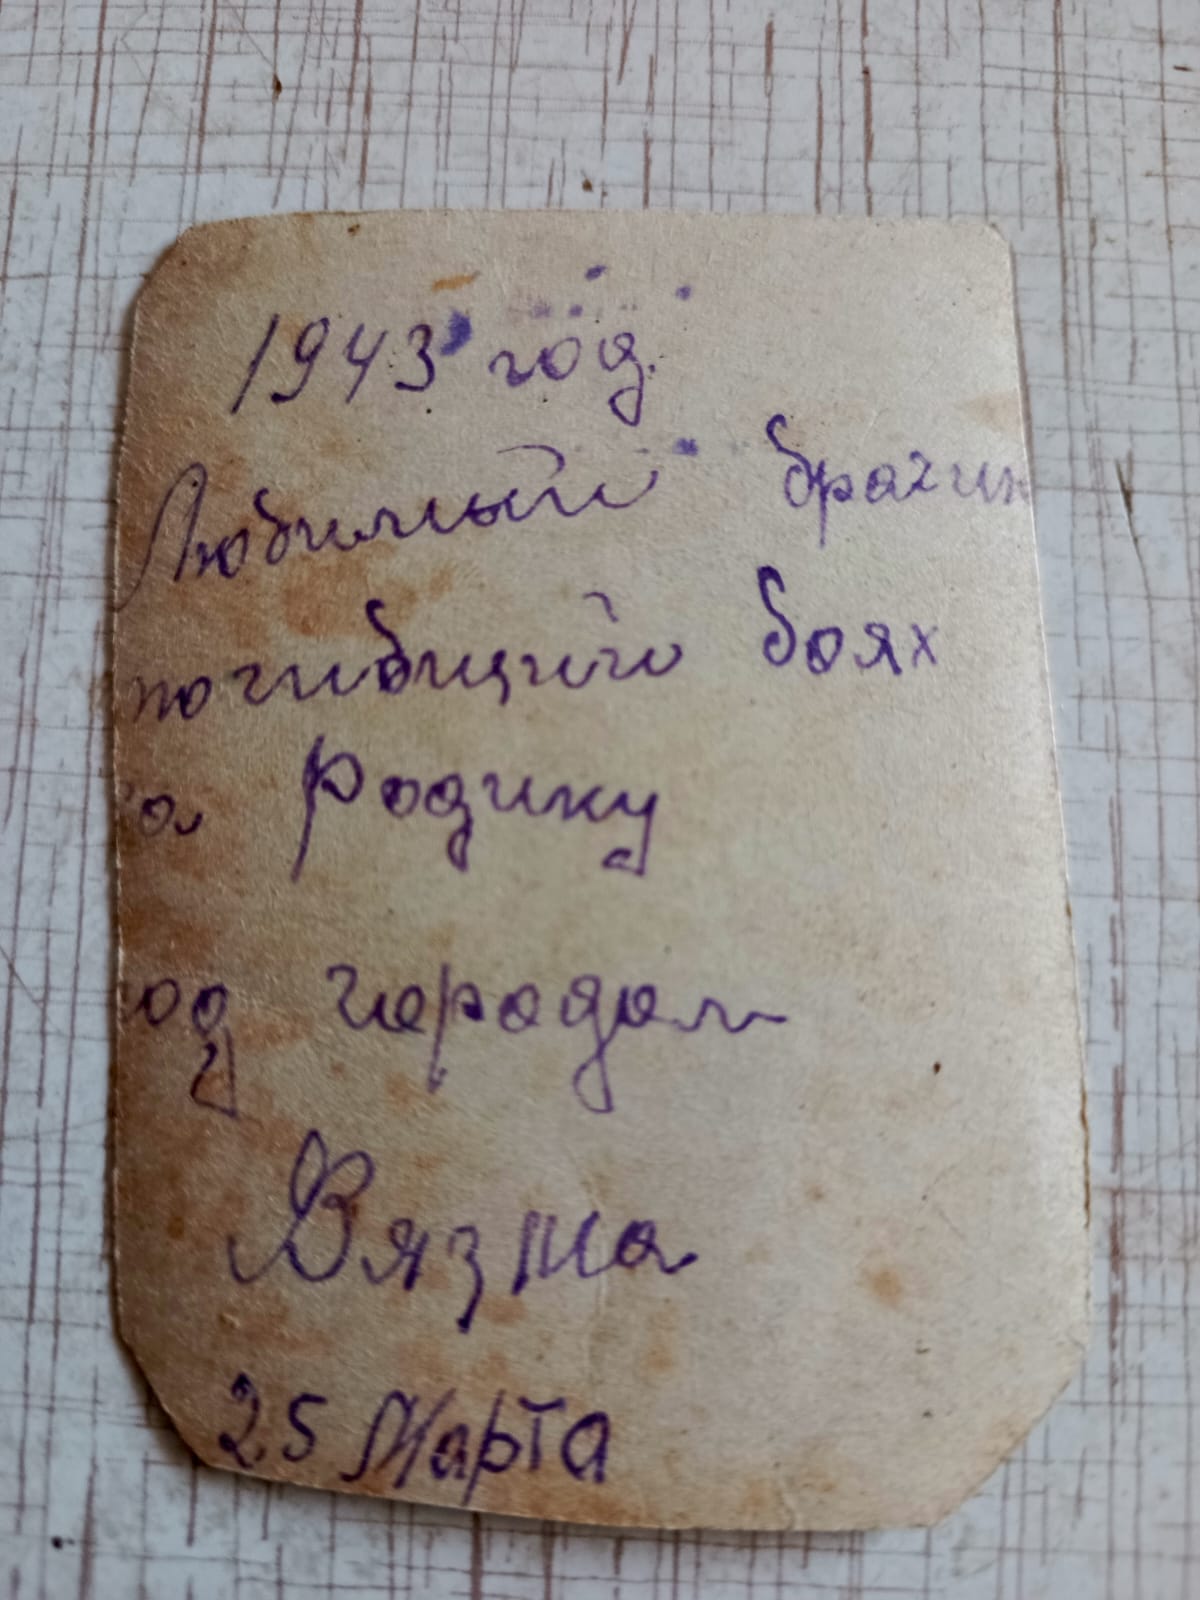 1943 год.
Любимый братик
погибший боях
за Родину
под городом
Вязма
25 Марта